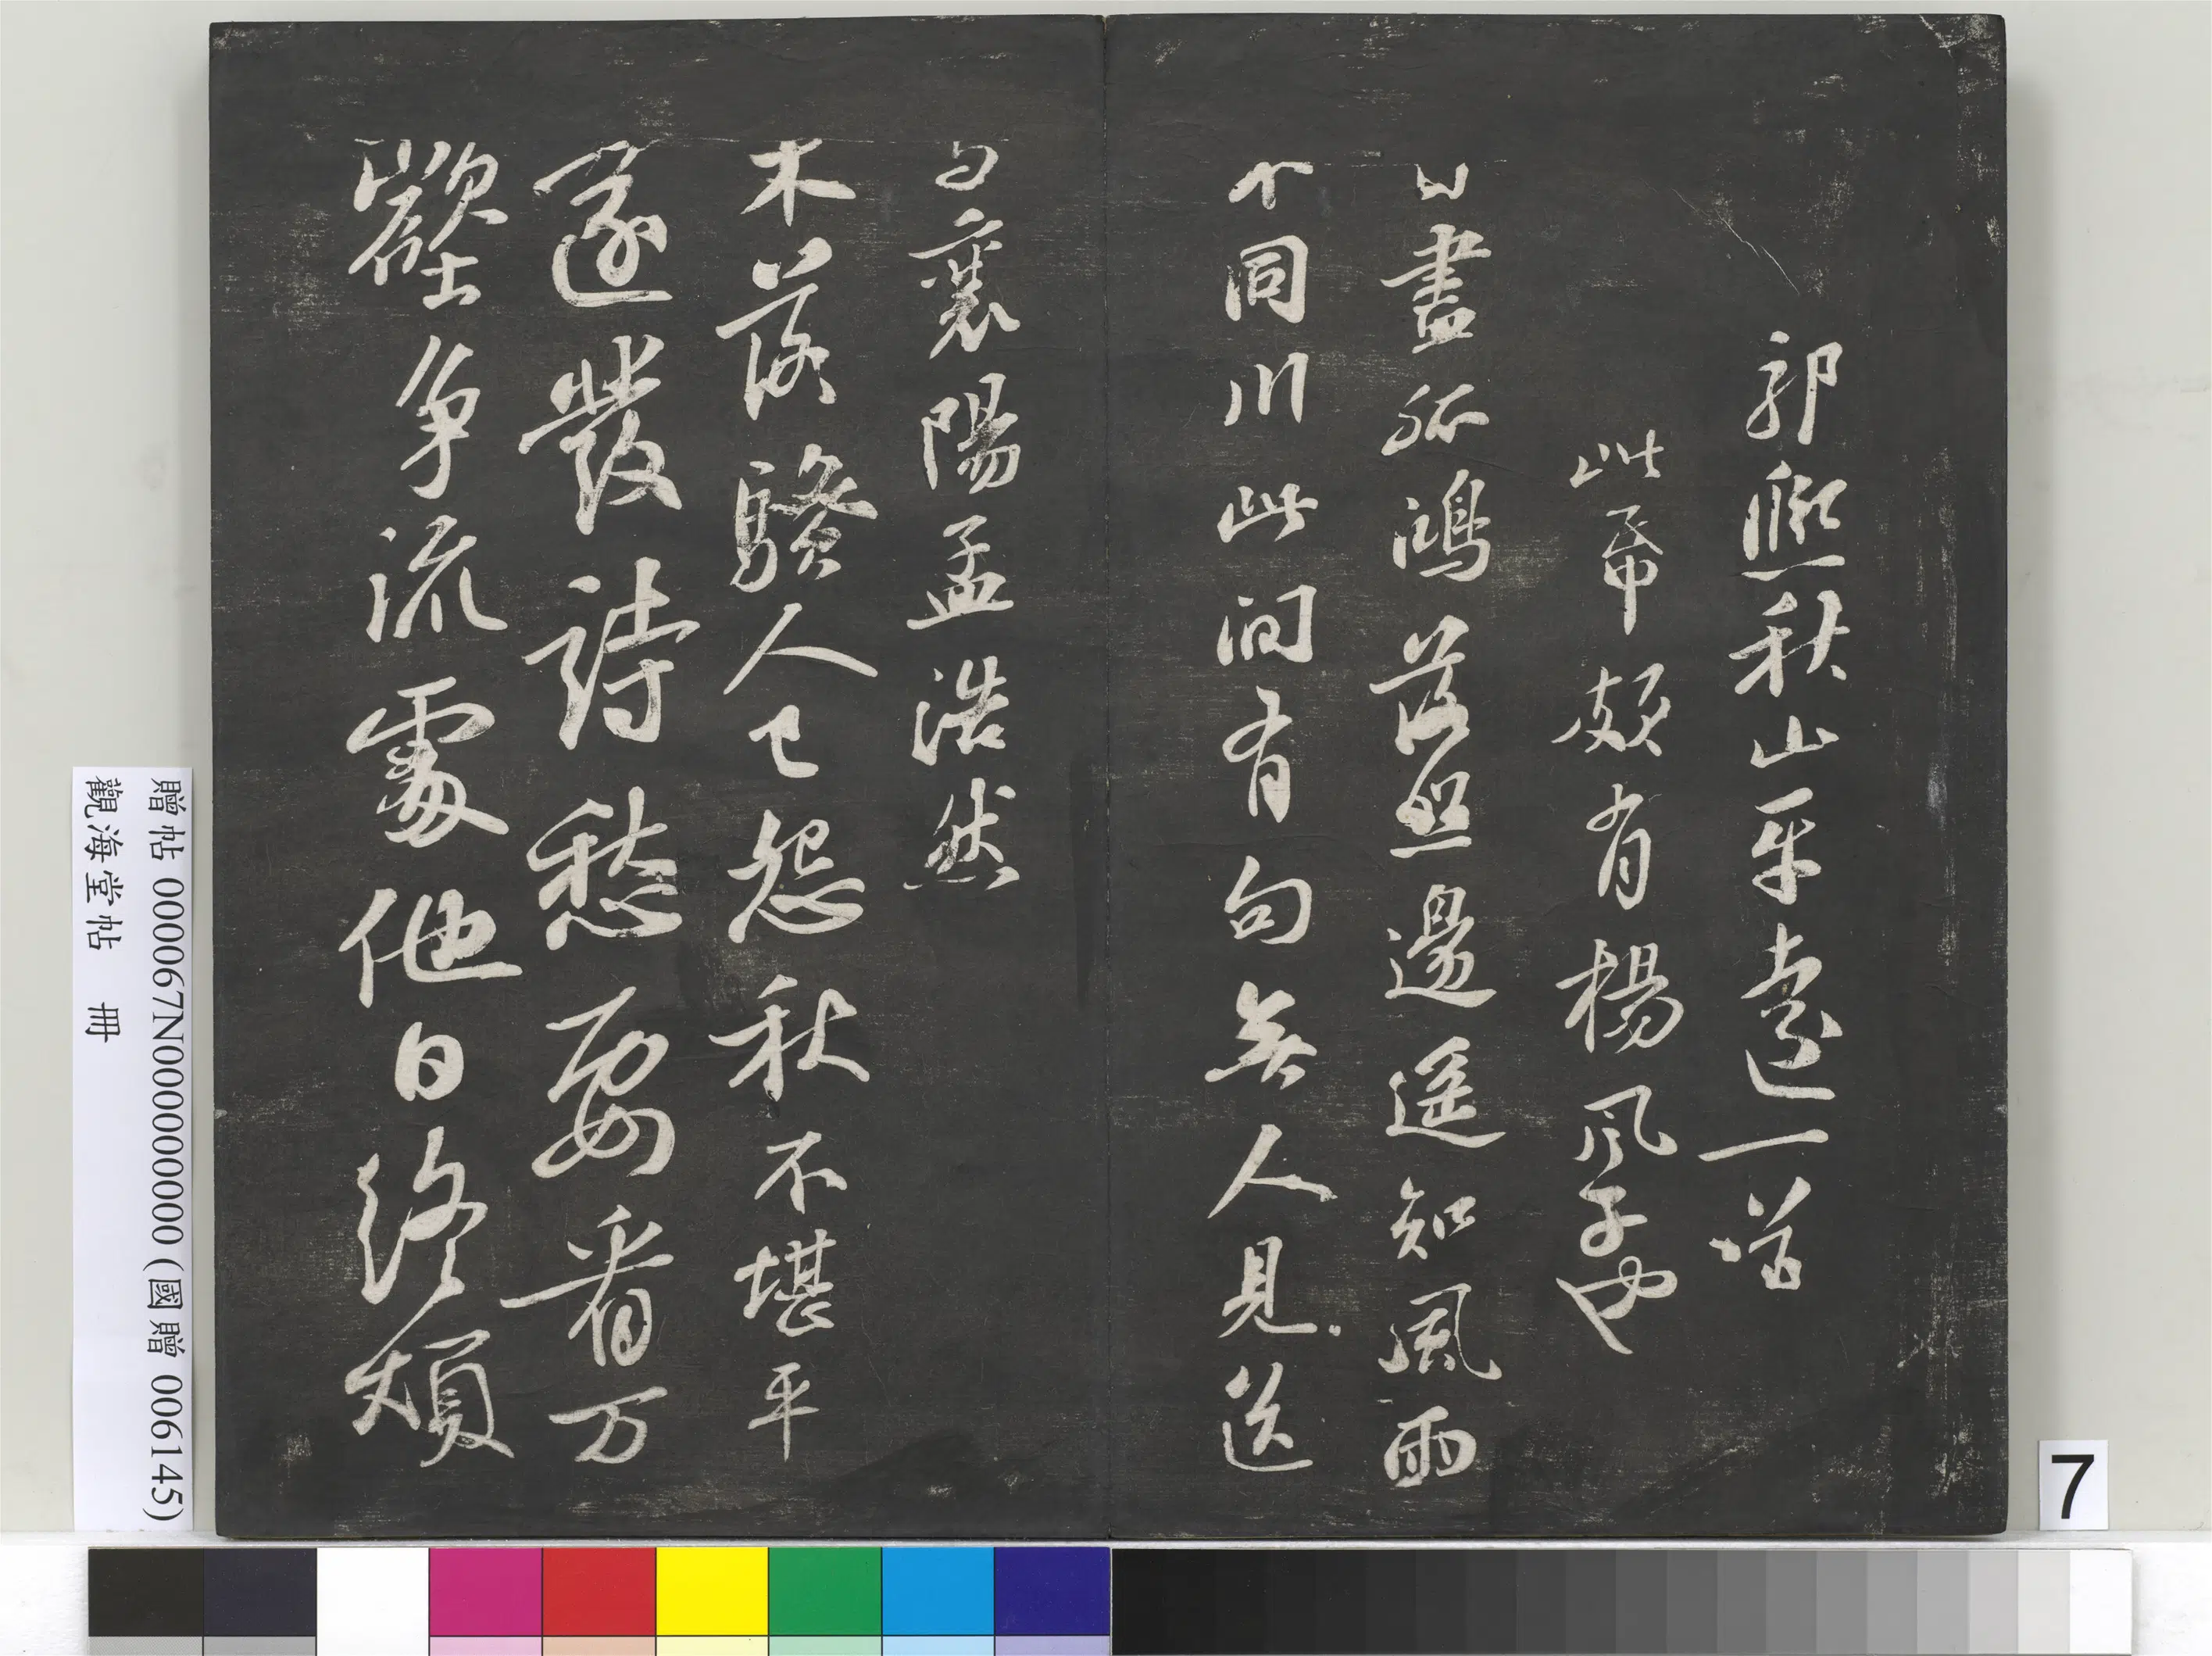 郭熙秋山平遠一首
此帋頗有楊風子也
目盡孤鴻落照邊遥知風雨
不同川此间有句無人見送
与襄陽孟浩然
木落騷人已怨秋不堪平
遠發詩愁要看万
壑争流處他日終煩
贈帖 000067N000000000 (國贈 006145)
觀海堂帖 冊
7